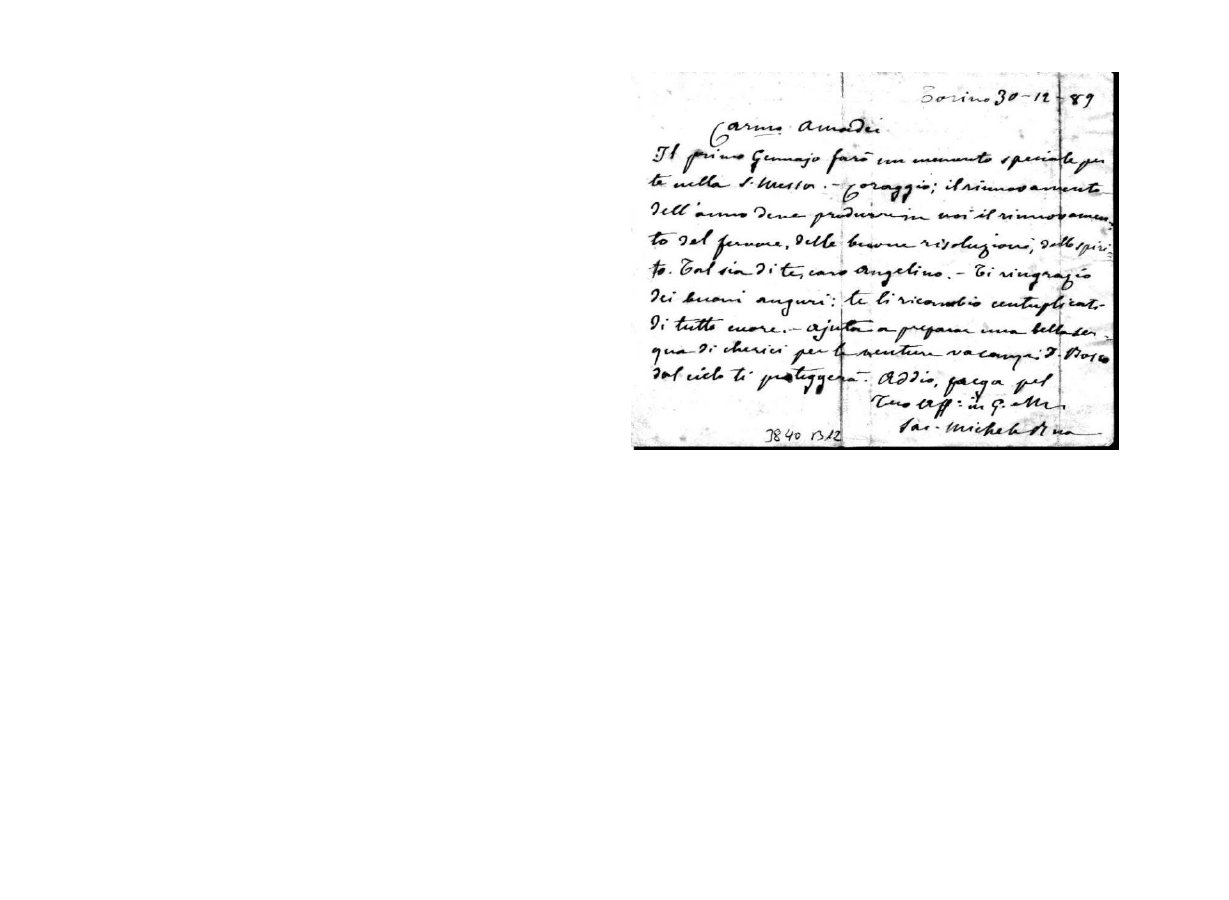 Torino 30-12-89
Carmo Amadei
Il primo Gennajo farò un memento speciale per
te nella S. Messa. - Coraggio; il rinnovamento
dell'anno deve produrre in noi il rinnovamen-
to del fervore, delle buone risoluzioni, dello spiri-
to. Tal sia di te, caro Angelino. - Ti ringrazio
dei buoni auguri: te li ricambio centuplicati
di tutto cuore. - Ajuta a preparar una bella ser-
qua di cherici per le venture vacanze. D. Bosco
dal cielo ti proteggerà. Addio, prega pel
Tuo aff: in G. e M.
Sac. Michele Rua
3840 B12